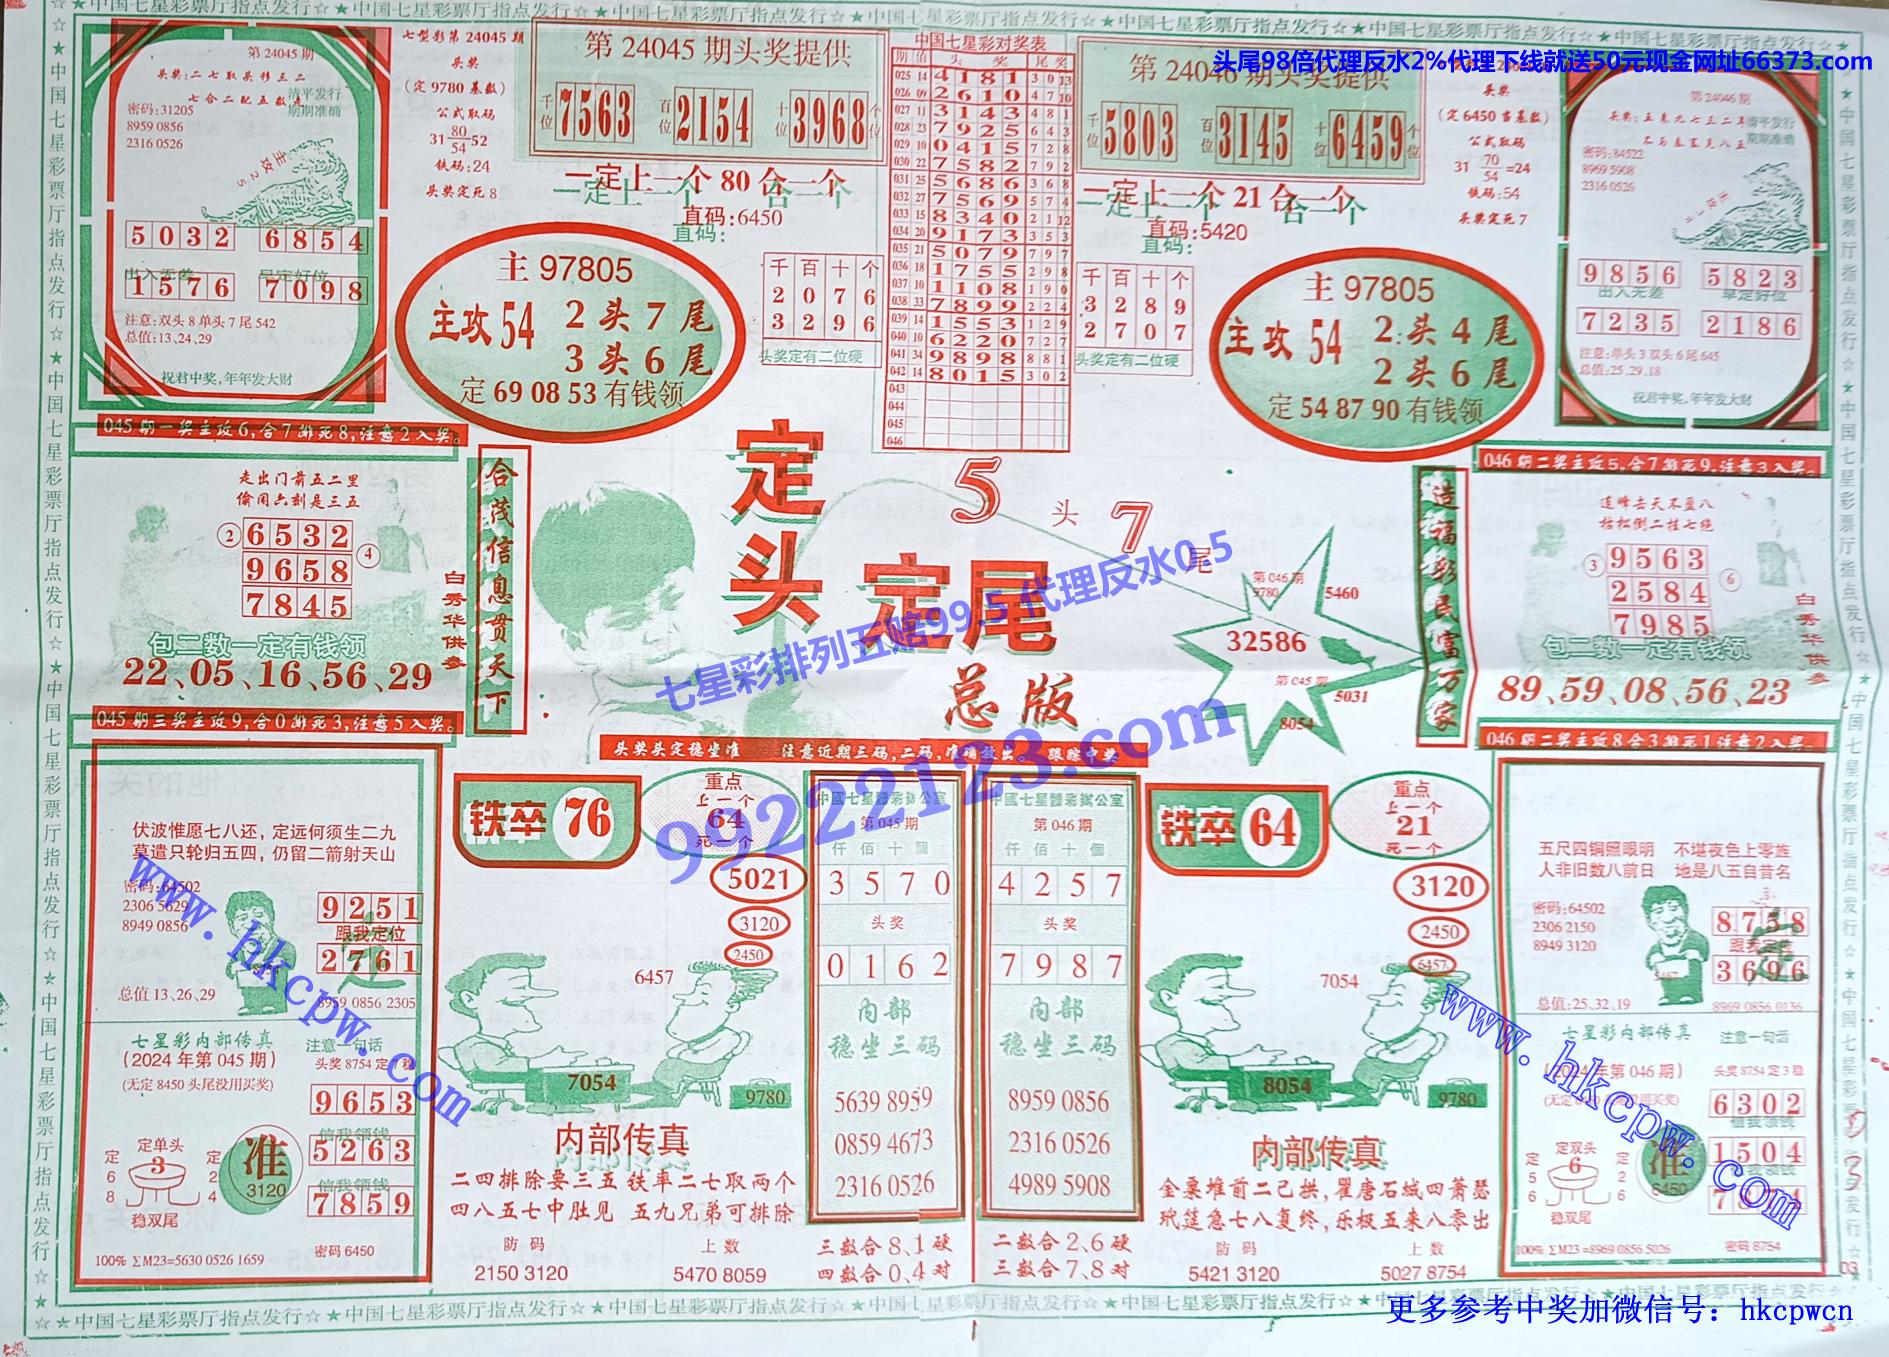 ☆★中国七星彩票厅指点发行☆★中国七星彩票厅指点发行☆★中国七星彩票厅指点发行☆
头尾98倍代理反水2%代理下线就送50元现金网址66373.com
第 24045 期
头奖:二七取头移三二
七合二配五数
清平发行
期期准确
密码:31205
8959 0856
2316 0526
5032 6854
出入无差 早定好位
1576 7098
注意:双头 8 单头 7 尾 542
总值:13,24,29
祝君中奖,年年发大财
七型彩第 24045 期
头奖
(定 9780 基数)
公式取码
31 80/54 52
铁码:24
头奖定死 8
第 24045 期头奖提供
千位 7563 百位 2154 十位 3968 个位
一定上一个 80 合一个
直码:6450
直码:
主 97805
主攻 54 2 头 7 尾
3 头 6 尾
定 69 08 53 有钱领
千百十个
2076
3296
头奖定有二位硬
中国七星彩对奖表
期 值 头奖 尾奖
025 14 4181 3 0 13
026 09 2610 4 7 10
027 11 3143 4 8 1
028 23 7925 6 4 3
029 10 0415 7 2 8
030 22 7582 7 9 2
031 25 5686 3 6 8
032 27 7569 5 7 4
033 15 8340 2 1 12
034 20 9173 3 5 3
035 21 5079 7 9 7
036 18 1755 2 9 8
037 10 1108 1 9 0
038 33 7899 2 2 4
039 14 1553 1 2 9
040 10 6220 7 2 7
041 34 9898 8 8 1
042 14 8015 3 0 2
043
044
045
046
第 24046 期头奖提供
千位 5803 百位 3145 十位 6459 个位
一定上一个 21 合一个
直码:5420
直码:
千百十个
3289
2707
头奖定有二位硬
主 97805
主攻 54 2 头 4 尾
2 头 6 尾
定 54 87 90 有钱领
头奖
(定 6450 当基数)
公式取码
31 70/54 =24
铁码:54
头奖定死 7
第 24046 期
清平发行
期期准确
密码:84522
8969 5908
2316 0526
9856 5823
出入无差 早定好位
7235 2186
注意:单头 3 双头 6 尾 645
总值:25,29,18
祝君中奖,年年发大财
045 期一奖主攻 6,合 7 排死 8,注意 2 入奖。
046 期二奖主攻 5,合 7 排死 9,注意 3 入奖。
走出门前五二里
偷闲六刻是三五
② 6532 ④
9658
7845
包二数一定有钱领
22、05、16、56、29
白秀华供参
合茂信息贯天下
定头定尾
总版
5 头 7 尾
第 046 期
9780
5460
32586
第 045 期
5031
8054
造福彩民富万家
连峰去天不盈八
枯松倒二挂七绝
③ 9563 ⑥
2584
7985
包二数一定有钱领
89、59、08、56、23
白秀华供参
七星彩排列五赔99.5 代理反水0.5
99222123.com
045 期三奖主攻 9,合 0 排死 3,注意 5 入奖。
头奖头定稳坐准 注意近期三码,二码,准确放出。 跟踪中奖
046 期二奖主攻 8 合 3 排死 1 注意 2 入奖。
伏波惟愿七八还，定远何须生二九
莫遣只轮归五四，仍留二箭射天山
密码:64502
2306 5629
8949 0856
9251
跟我定位
2761
总值 13,26,29
8959 0856 2305
七星彩内部传真
(2024 年第 045 期)
(无定 8450 头尾没用买奖)
注意一句话
头奖 8754 定 7 稳
9653
信我领钱
5263
信我领钱
7859
定单头
3
定 6 8
定 2 4
稳双尾
准
3120
100% ∑M23=5630 0526 1659
密码 6450
www.hkcpw.com
铁卒 76
重点
上一个
64
死一个
5021
3120
2450
6457
7054
9780
内部传真
二四排除要三五 铁率二七取两个
四八五七中肚见 五九兄弟可排除
防码 上数
2150 3120 5470 8059
中國七星體彩辦公室
第 045 期
仟佰十個
3570
头奖
0162
内部
稳坐三码
5639 8959
0859 4673
2316 0526
三数合 8、1 硬
四数合 0、4 对
中國七星體彩辦公室
第 046 期
仟佰十個
4257
头奖
7987
内部
稳坐三码
8959 0856
2316 0526
4989 5908
二数合 2、6 硬
三数合 7、8 对
铁卒 64
重点
上一个
21
死一个
3120
2450
6457
7054
8054
9780
内部传真
金粟堆前二已拱,瞿唐石城四萧瑟
玳筵急七八复终,乐极五来八零出
防码 上数
5421 3120 5027 8754
五尺四铜照眼明 不堪夜色上零旌
人非旧数八前日 地是八五自昔名
密码:64502
2306 2150
8949 3120
8758
跟我定位
3696
总值:25、32、19
8969 0856 0136
七星彩内部传真
(2024 年第 046 期)
注意一句话
头奖 8754 定 3 稳
6302
信我领钱
1504
定双头
6
定 5 6
定 2 6
稳双尾
准
6450
100% ∑M23 =8969 0856 5026
密码 8754
www.hkcpw.com
☆★中国七星彩票厅指点发行☆★中国七星彩票厅指点发行☆★中国七星彩票厅指点发行☆
更多参考中奖加微信号：hkcpwcn